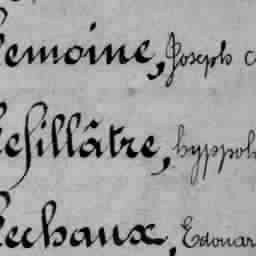 Lemoine, Joseph
Lesillâtre, hyppol
Lechaux, Edouar